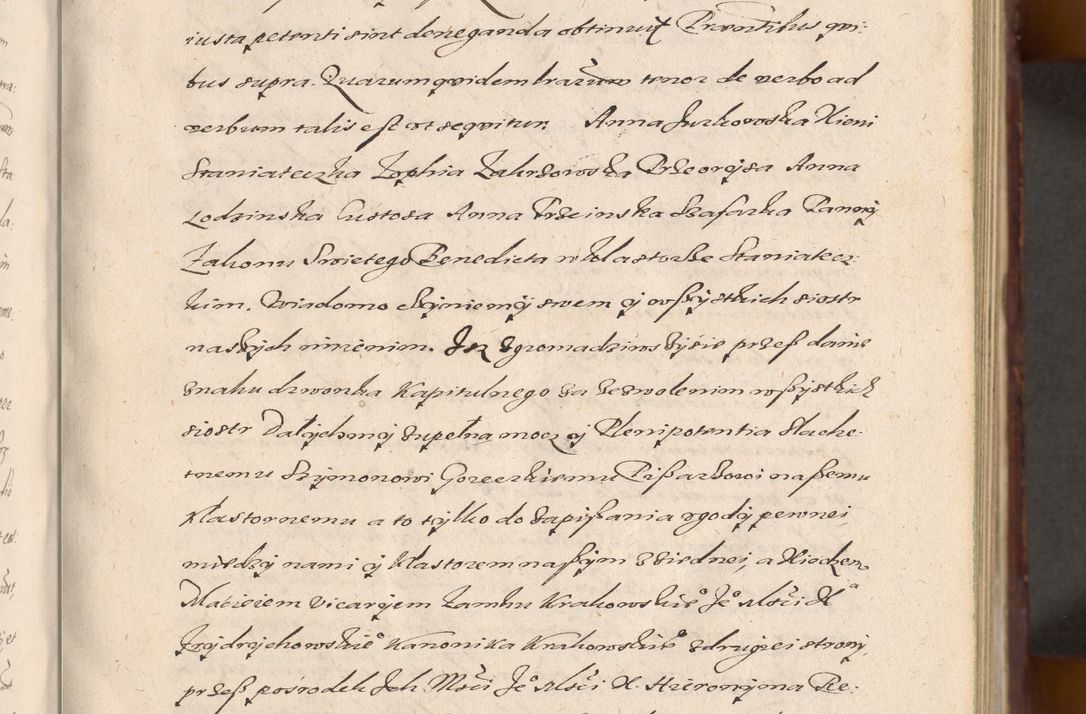 iusta petenti sint deneganda obtinuit Praesentibus qui:
bus supra. Quarum quidem lrarum tenor de verbo ad
verbum talis est ut sequitur. Anna Jurkowska Xieni
Staniateczka Zophia Zakrzowska Przeorysa Anna
Lodzinska Custosa Anna Trzcinska Szafarka Panny
Zakonu Swietego Benedicta w Klastorze Staniatec:
kim. Wiadomo czyniemy swem y wszystkich siostr
naszych imienim. Jsz zgromadziwszysie przesz danie
znaku dzwonka Kapitulnego za zezwolenim wszystkich
siostr Dalychmy zupelna mocz y Plenipotentia Slache:
tnemu Szymonowi Goreczkiemu Piszarzowi naszemu
Klastornemu a to tylko do zapiszania zgody pewnei
miedzy nami y Klastorem naszym z iednei, a Xiedzem
Maciejem Vicaryem Zamku Krakowskieo Jeo Mosci Xa
Jzydrychowskieo Kanonika Krakowskieo z drugiei strony,
przesz posrodek Jch Mosci Jeo Mosci X. Hieronyma Re: